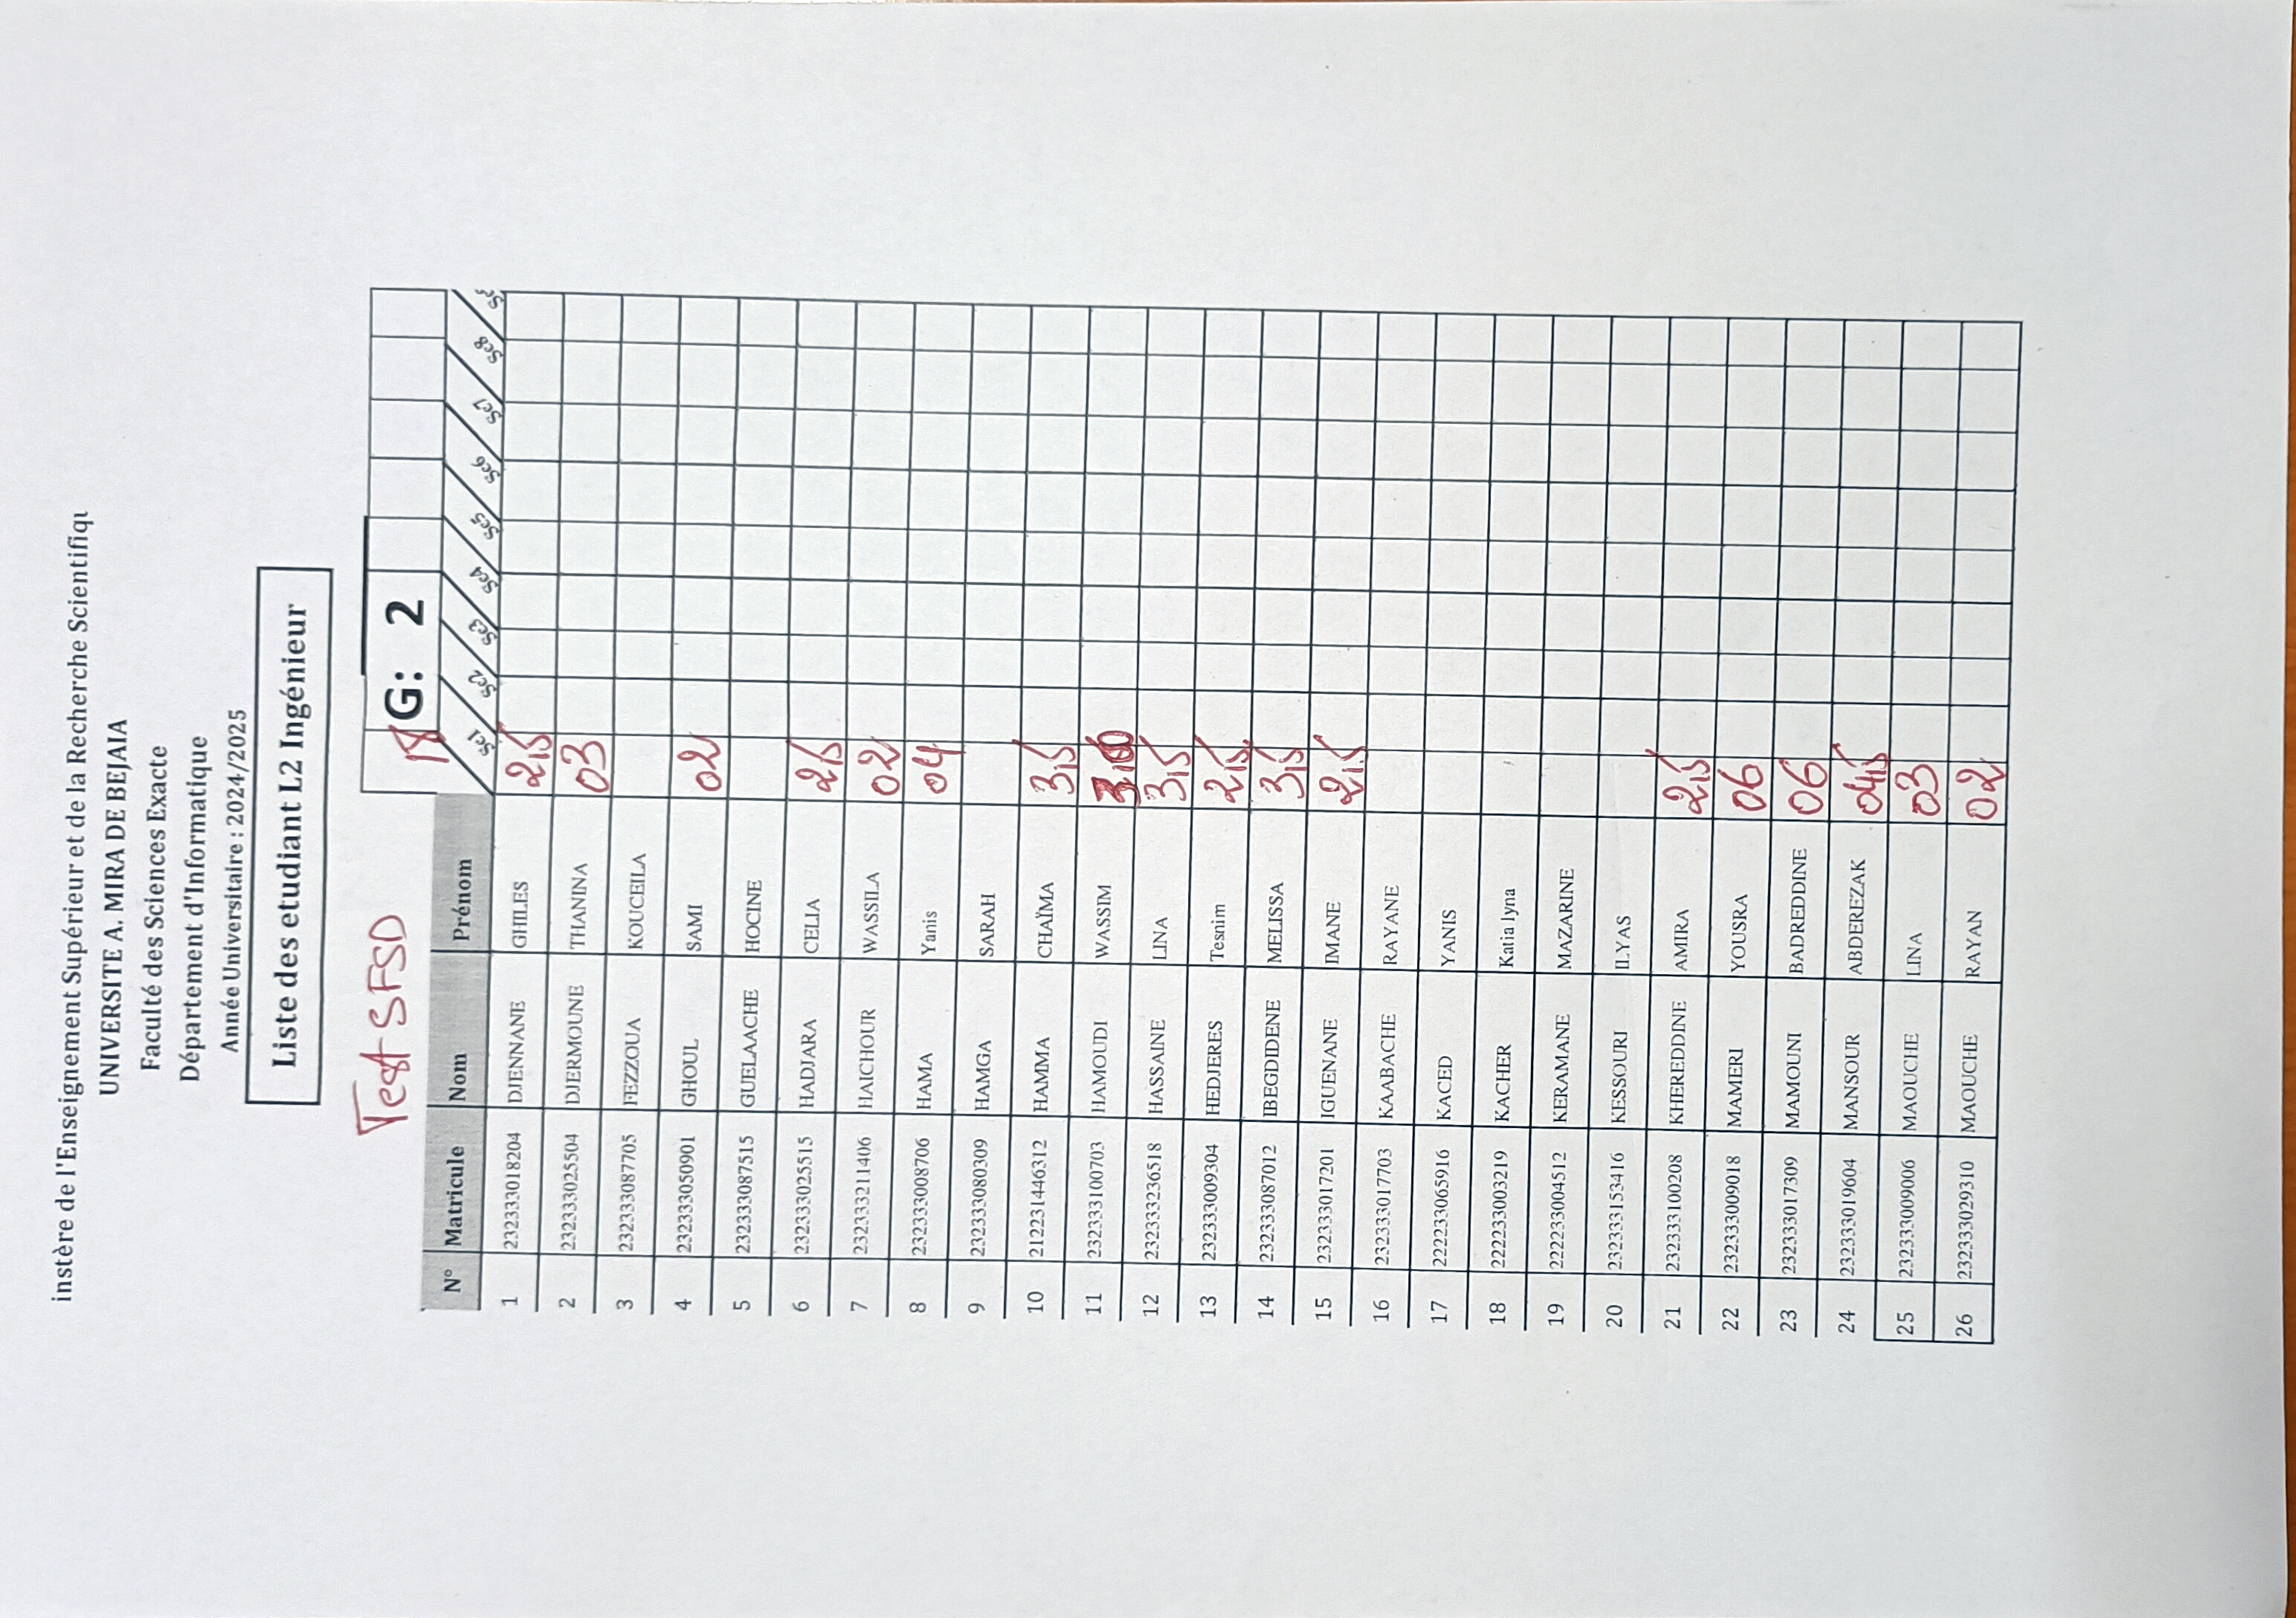 instère de l'Enseignement Supérieur et de la Recherche Scientifiqu
UNIVERSITE A. MIRA DE BEJAIA
Faculté des Sciences Exacte
Département d'Informatique
Année Universitaire : 2024/2025
Liste des etudiant L2 Ingénieur
Test SFSD
G: 2
N° Matricule Nom Prénom Se1 Se2 Se3 Se4 Se5 Se6 Se7 Se8
1 232333018204 DJENNANE GHILES 2,5
2 232333025504 DJERMOUNE THANINA 03
3 232333087705 FEZZOUA KOUCEILA
4 232333050901 GHOUL SAMI 02
5 232333087515 GUELAACHE HOCINE
6 232333025515 HADJARA CELIA 2,5
7 232333211406 HAICHOUR WASSILA 02
8 232333008706 HAMA Yanis 04
9 232333080309 HAMGA SARAH
10 212231446312 HAMMA CHAÏMA 3,5
11 232333100703 HAMOUDI WASSIM
12 232333236518 HASSAINE LINA 3,5
13 232333009304 HEDJERES Tesnim 2,5
14 232333087012 IBEGDIDENE MELISSA 3,5
15 232333017201 IGUENANE IMANE 2,5
16 232333017703 KAABACHE RAYANE
17 222233065916 KACED YANIS
18 222233003219 KACHER Katia lyna
19 222233004512 KERAMANE MAZARINE
20 232333153416 KESSOURI ILYAS
21 232333100208 KHEREDDINE AMIRA 2,5
22 232333009018 MAMERI YOUSRA 06
23 232333017309 MAMOUNI BADREDDINE 06
24 232333019604 MANSOUR ABDEREZAK 04,5
25 232333009006 MAOUCHE LINA 03
26 232333029310 MAOUCHE RAYAN 02